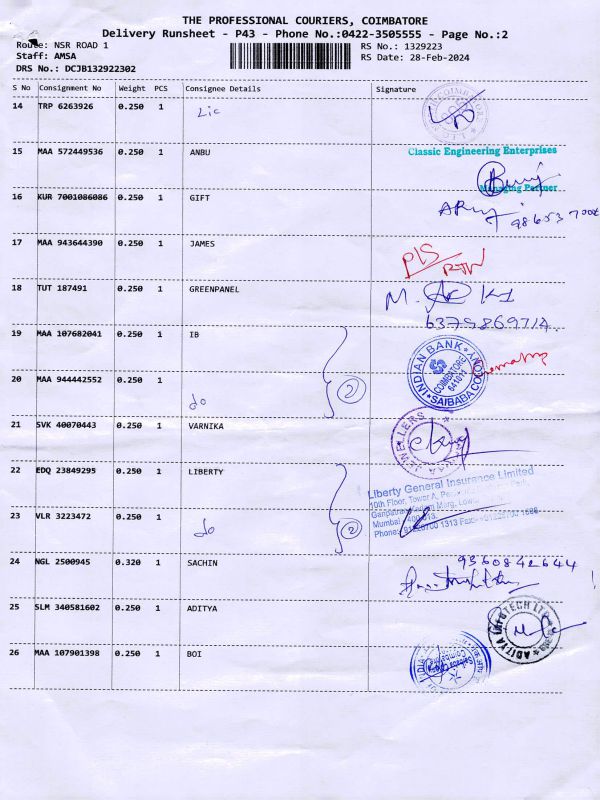 THE PROFESSIONAL COURIERS, COIMBATORE
Delivery Runsheet - P43 - Phone No.:0422-3505555 - Page No.:2
Route: NSR ROAD 1 RS No.: 1329223
Staff: AMSA RS Date: 28-Feb-2024
DRS No.: DCJB132922302
S No Consignment No Weight PCS Consignee Details Signature
14 TRP 6263926 0.250 1 Lic
15 MAA 572449536 0.250 1 ANBU Classic Engineering Enterprises
Managing Partner
16 KUR 7001086086 0.250 1 GIFT
17 MAA 943644390 0.250 1 JAMES
18 TUT 187491 0.250 1 GREENPANEL
19 MAA 107682041 0.250 1 IB INDIAN BANK
COIMBATORE
641011
SAIBABA COLONY
20 MAA 944442552 0.250 1 do 2
21 SVK 40070443 0.250 1 VARNIKA JEWELLERS
22 EDQ 23849295 0.250 1 LIBERTY Liberty General Insurance Limited
10th Floor, Tower A,
23 VLR 3223472 0.250 1 do 2
24 NGL 2500945 0.320 1 SACHIN 9360842644
25 SLM 340581602 0.250 1 ADITYA ADITYA INFOTECH LTD
26 MAA 107901398 0.250 1 BOI